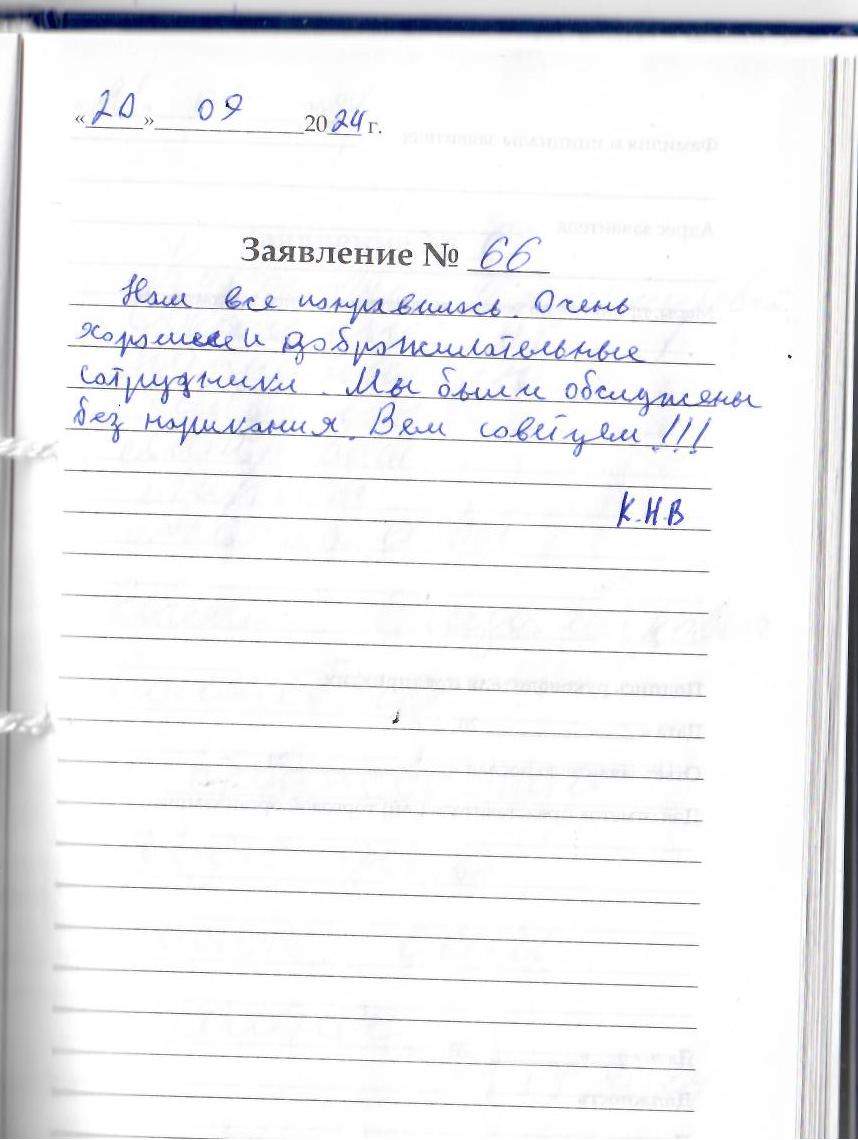 «20» 09 2024 г.
Заявление № 66
Нам все понравилось. Очень
хорошие и доброжилательные
сотрудники. Мы были обслужены
без нарикания. Всем советуем!!!
К.Н.В